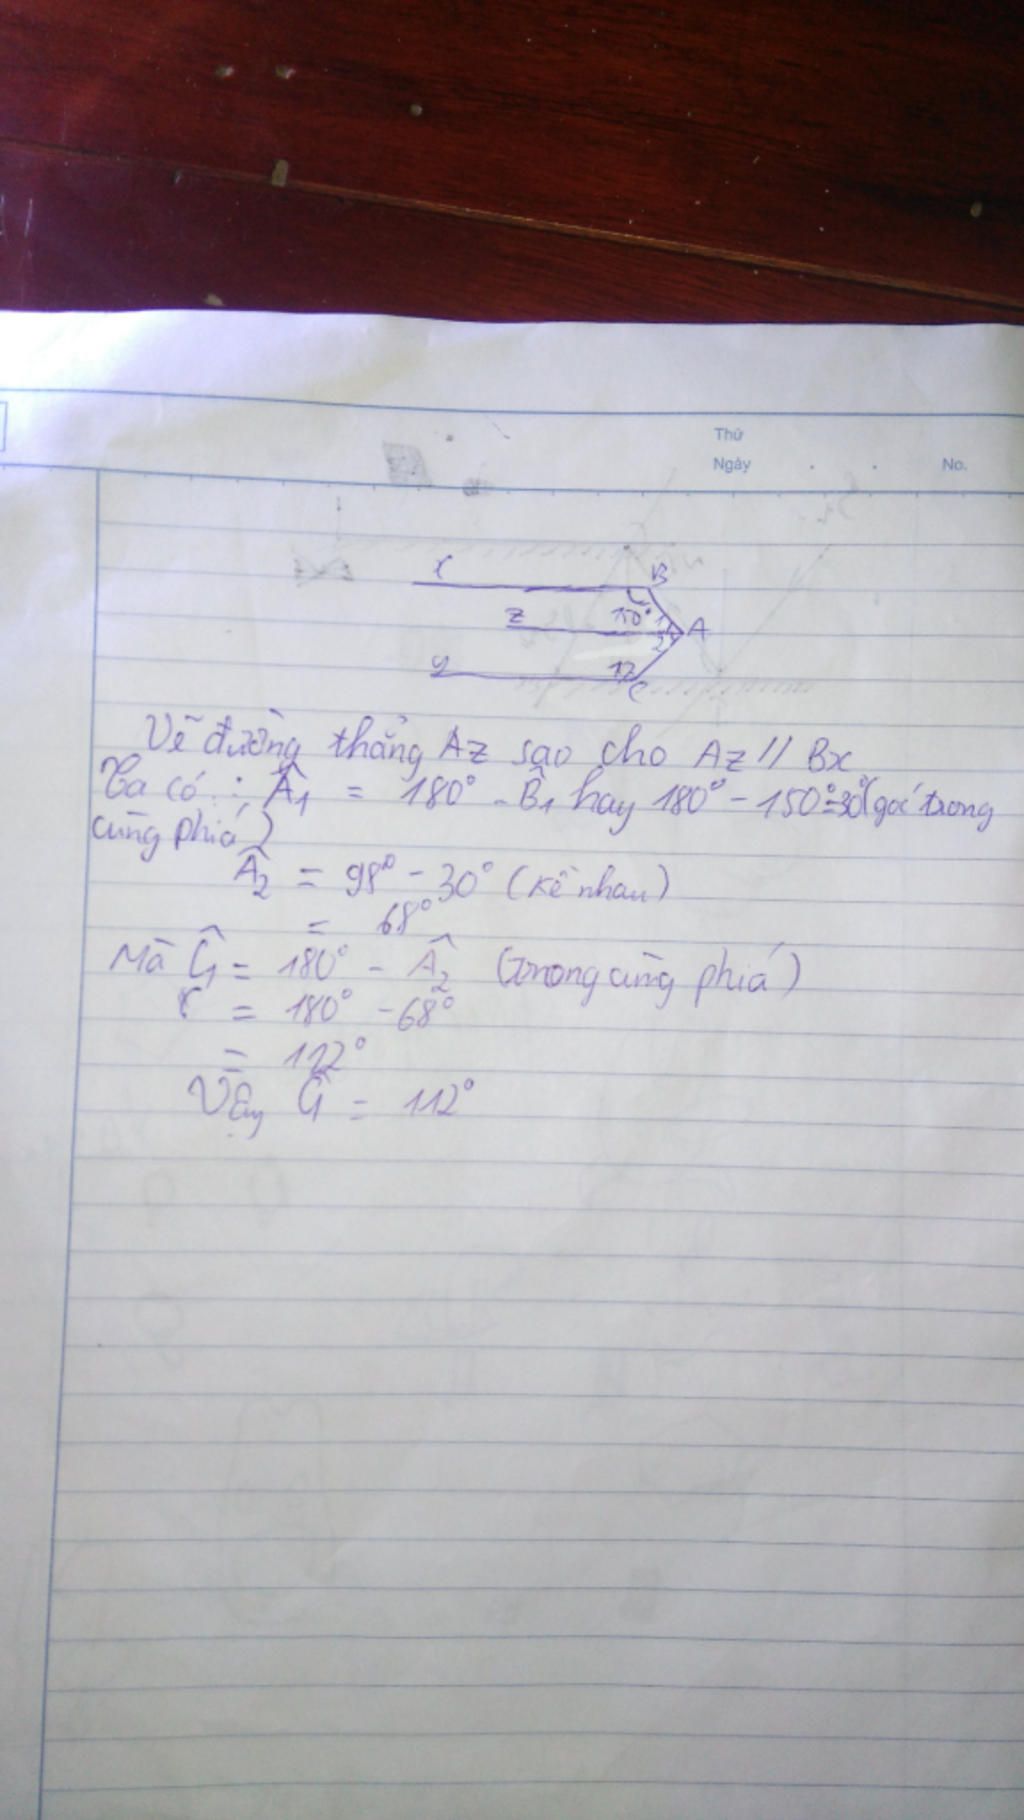 Thứ
Ngày . . No.
x B
z 150° 1 A
2
y 1 C
Vẽ đường thẳng Az sao cho Az // Bx
Ta có : Â1 = 180° - B̂1 hay 180° - 150° = 30° (góc trong
cùng phía)
Â2 = 98° - 30° (kề nhau)
= 68°
Mà Ĉ1 = 180° - Â2 (trong cùng phía)
= 180° - 68°
= 112°
Vậy Ĉ1 = 112°